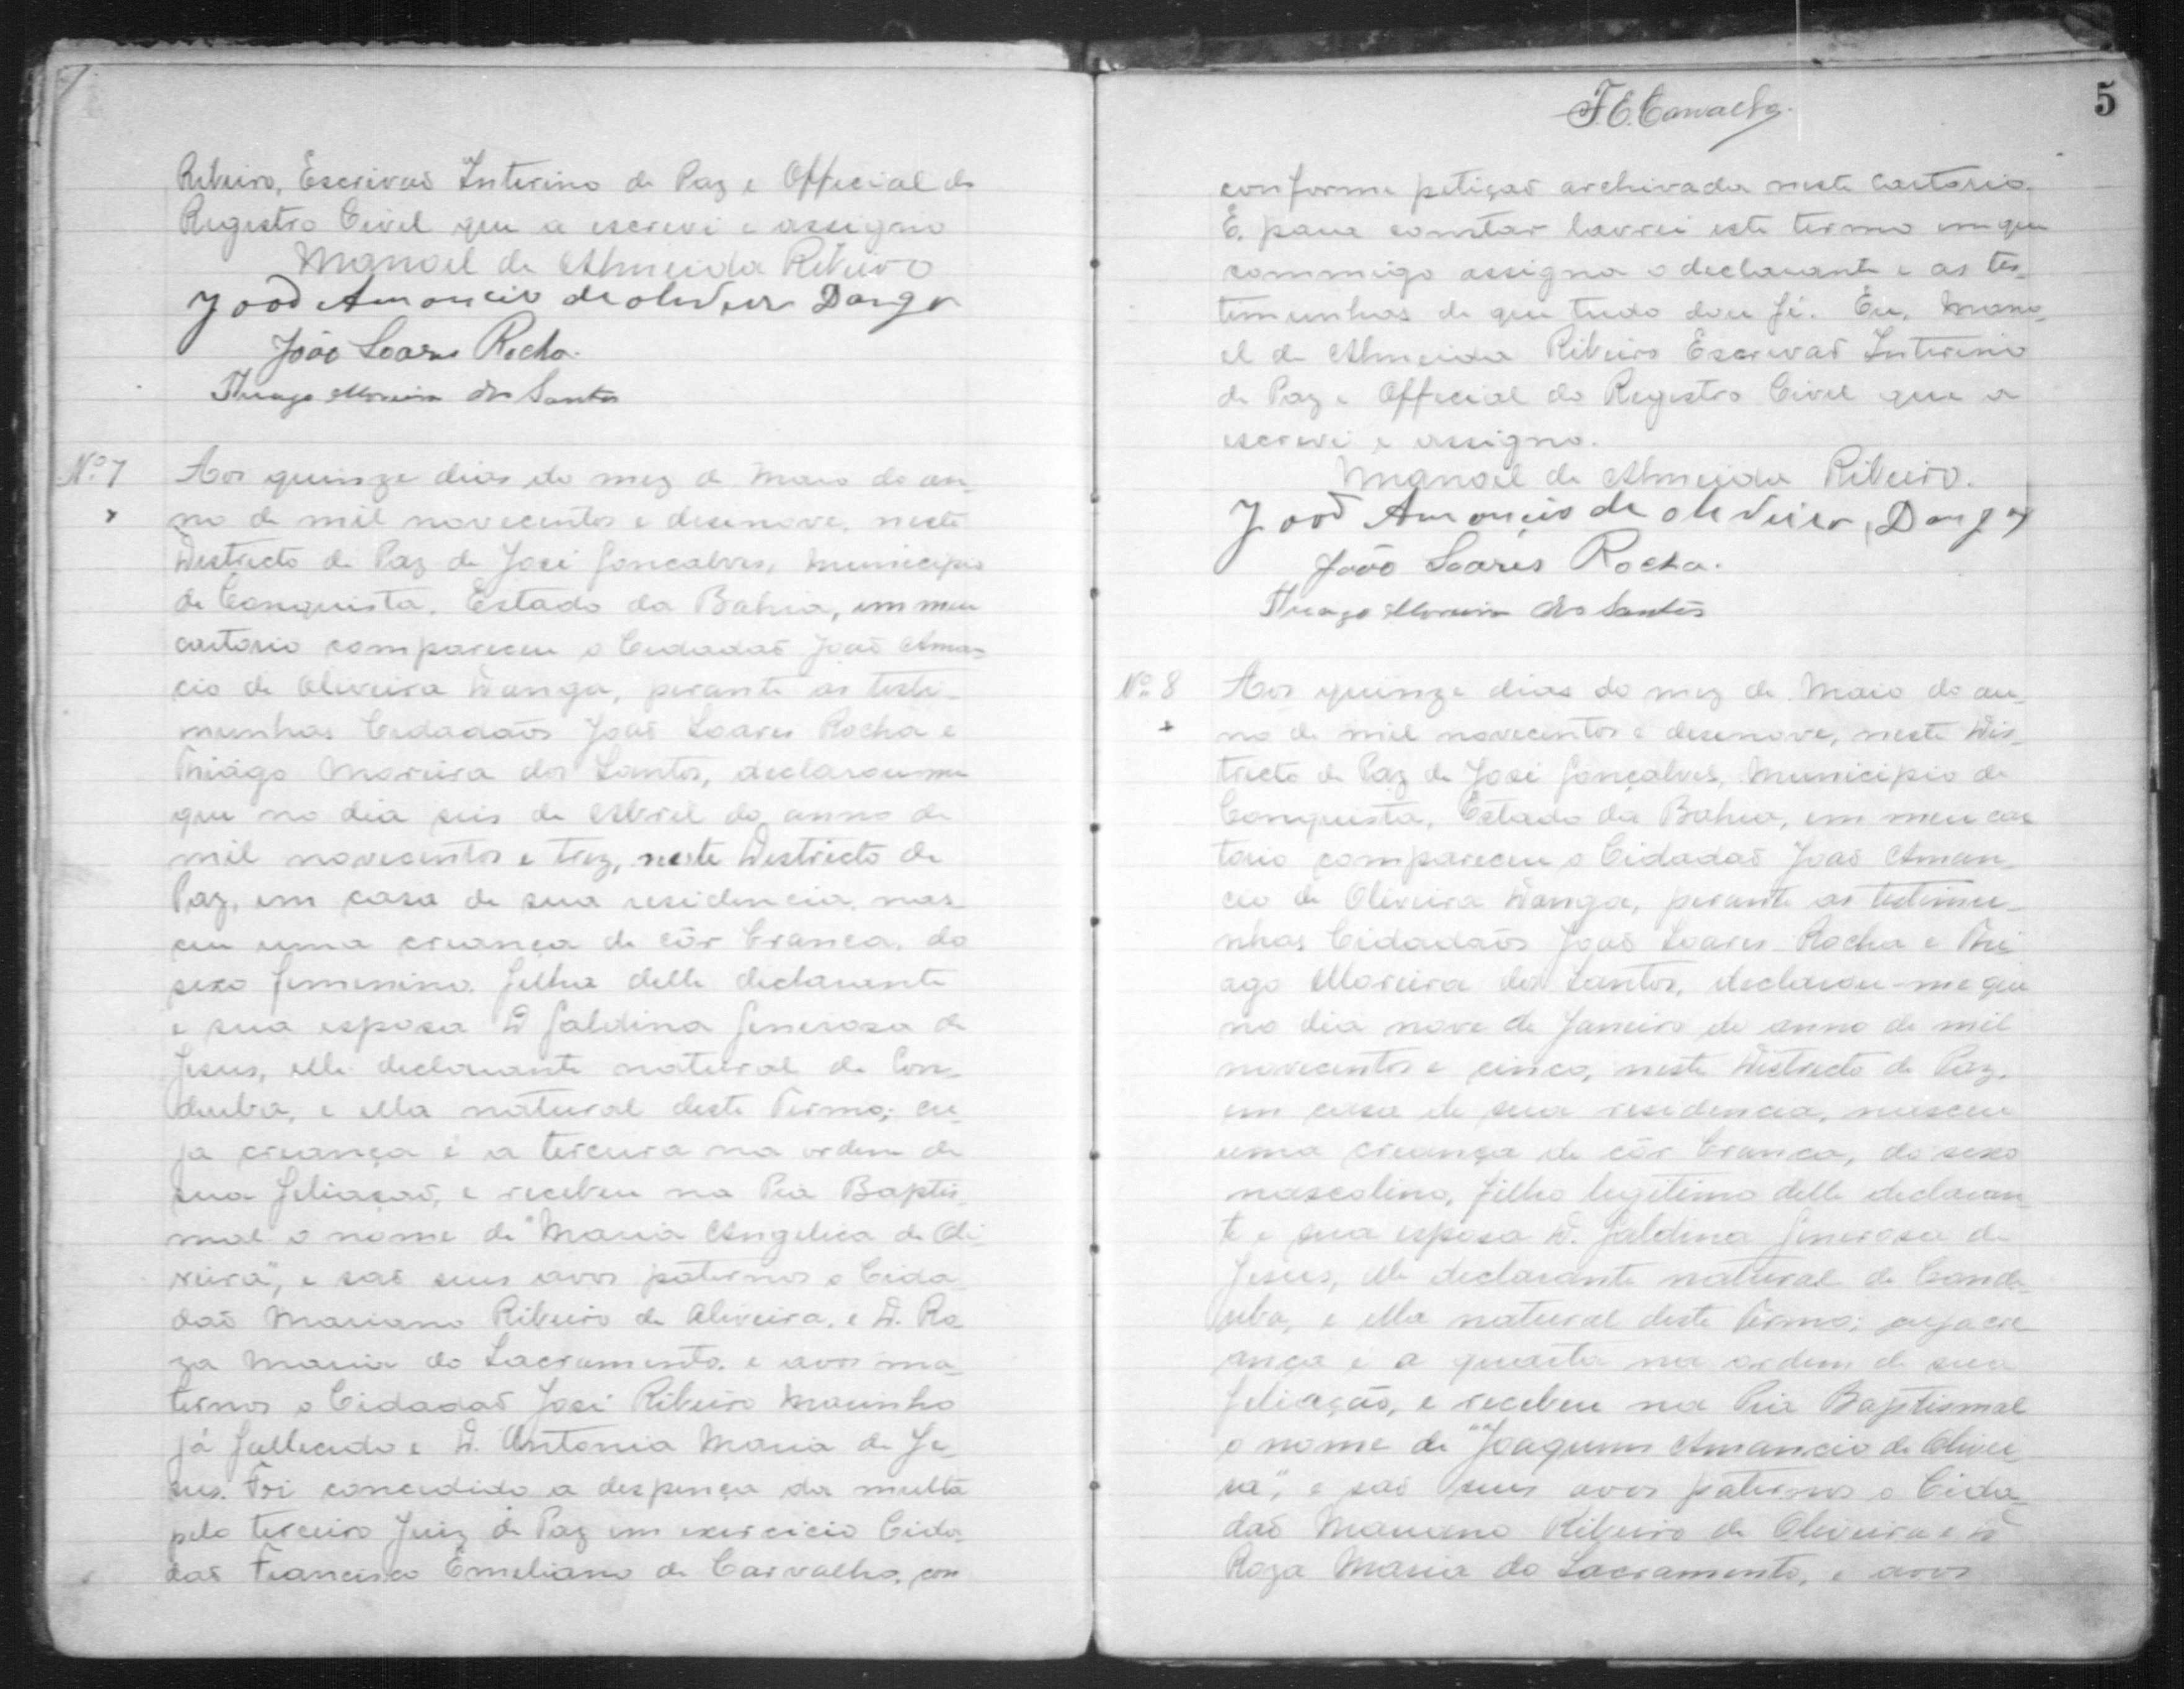 Ribeiro, Escrivaõ Interino de Paz e Official do
Registro Civil que a escrevi e assigno
Manoel de Almeida Ribeiro
Joaõ Amancio de oliveira Danga
João Soares Rocha.
Thiago Moreira dos Santos
Nº 7
Aos quinze dias do mez de Maio do an-
no de mil novecentos e desenove, neste
Districto de Paz de José Gonçalves, Municipio
de Conquista, Estado da Bahia, em meu
cartorio compareceu o Cidadaõ Joaõ Aman-
cio de Oliveira Danga, perante as teste-
munhas Cidadaõs Joaõ Soares Rocha e
Thiágo Moreira dos Santos, declarou-me
que no dia seis de Abril do anno de
mil novecentos e trez, neste Districto de
Paz, em casa de sua residencia, nas-
ceu uma creança de côr branca, do
sexo femenino, filha delle declarante
e sua esposa D Galdina Generosa de
Jesus, elle declarante natural de Con-
deuba, e ella natural deste Termo; cu-
ja creança é a terceira na ordem de
sua filiaçaõ, e recebeu na Pia Baptis-
mal o nome de "Maria Angelica de Oli-
veira", e saõ seus avos paternos o Cida-
daõ Mariano Ribeiro de Oliveira, e D. Ro-
za Maria do Sacramento, e avos ma-
ternos o Cidadaõ José Ribeiro Marinho
já fallecido e D. Antonia Maria de Je-
sus. Foi concedido a despença da multa
pelo terceiro Juiz de Paz em exercicio Cida-
daõ Francisco Emeliano de Carvalho, con
F. E. Carvalho.
5
conforme petiçaõ archivada neste Cartorio.
E, para constar lavrei este termo em que
commigo assigna o declarante e as tes-
temunhas de que tudo dou fé. Eu, Mano-
el de Almeida Ribeiro Escrivaõ Interino
de Paz e Official do Registro Civil que a
escrevi e assigno.
Manoel de Almeida Ribeiro.
Joaõ Amancio de oliveira Danga
João Soares Rocha.
Thiago Moreira dos Santos
Nº 8
Aos quinze dias do mez de Maio do an-
no de mil novecentos e desenove, neste Dis-
tricto de Paz de José Gonçalves, Municipio de
Conquista, Estado da Bahia, em meu car
torio compareceu o Cidadaõ Joaõ Aman-
cio de Oliveira Danga, perante as testemu-
nhas Cidadaõs Joaõ Soares Rocha e Thi-
ago Moreira dos Santos, declarou-me que
no dia nove de Janeiro do anno de mil
novecentos e cinco, neste Districto de Paz,
em casa de sua residencia, nasceu
uma creança de côr branca, do sexo
mascolino, filho legitimo delle declaran-
te e sua esposa D. Galdina Generosa de
Jesus, elle declarante natural de Conde-
uba, e ella natural deste Termo; cuja cre
ança é a quarta na ordem de sua
feliação, e recebeu na Pia Baptismal
o nome de "Joaquim Amancio de Olivei-
ra", e saõ seus avos paternos o Cida-
daõ Mariano Ribeiro de Oliveira e D
Roza Maria do Sacramento, e avos